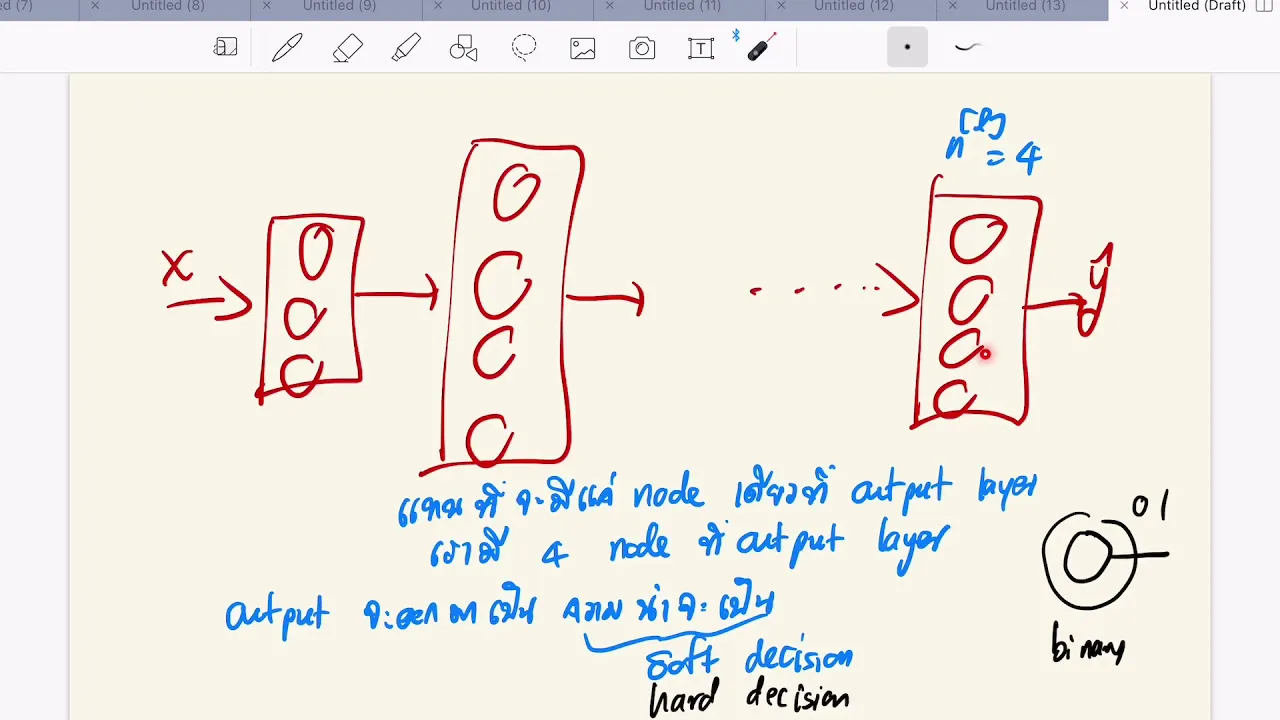 d (7)
Untitled (8)
Untitled (9)
Untitled (10)
Untitled (11)
Untitled (12)
Untitled (13)
Untitled (Draft)
T
n[L] = 4
x
ŷ
แทนที่ จะมีแค่ node เดียวที่ output layer
เรามี 4 node ที่ output layer
output จะออกมาเป็น ความน่าจะเป็น
soft decision
hard decision
0 1
binary